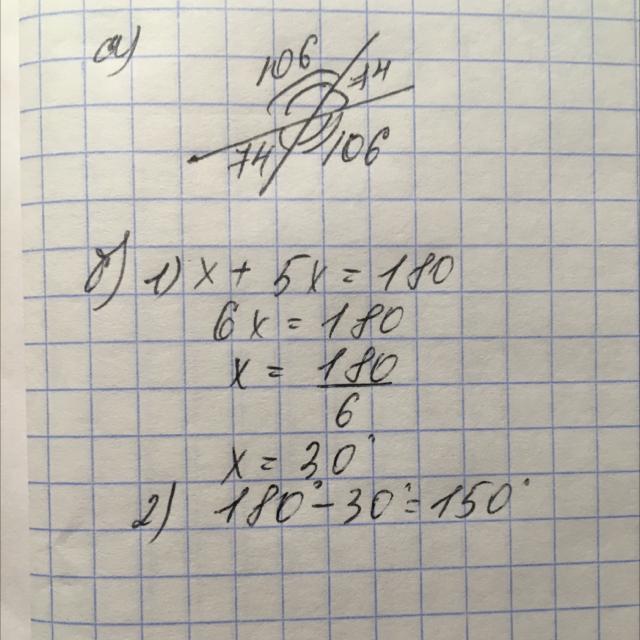 а)
106
74
74
106
б) 1) x + 5x = 180
6x = 180
x = 180/6
x = 30°
2) 180° - 30° = 150°